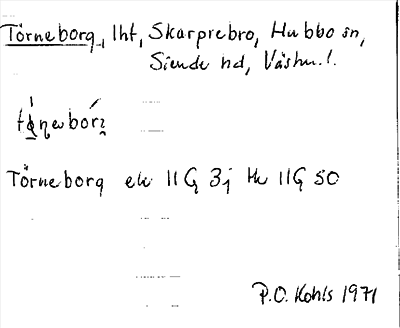 Törneborg, lht, Skarprebro, Hubbo sn,
Siende hd, Västm. l.
Törneborg ek 11G 3j Hk 11G 50
P.O. Kohls 1971